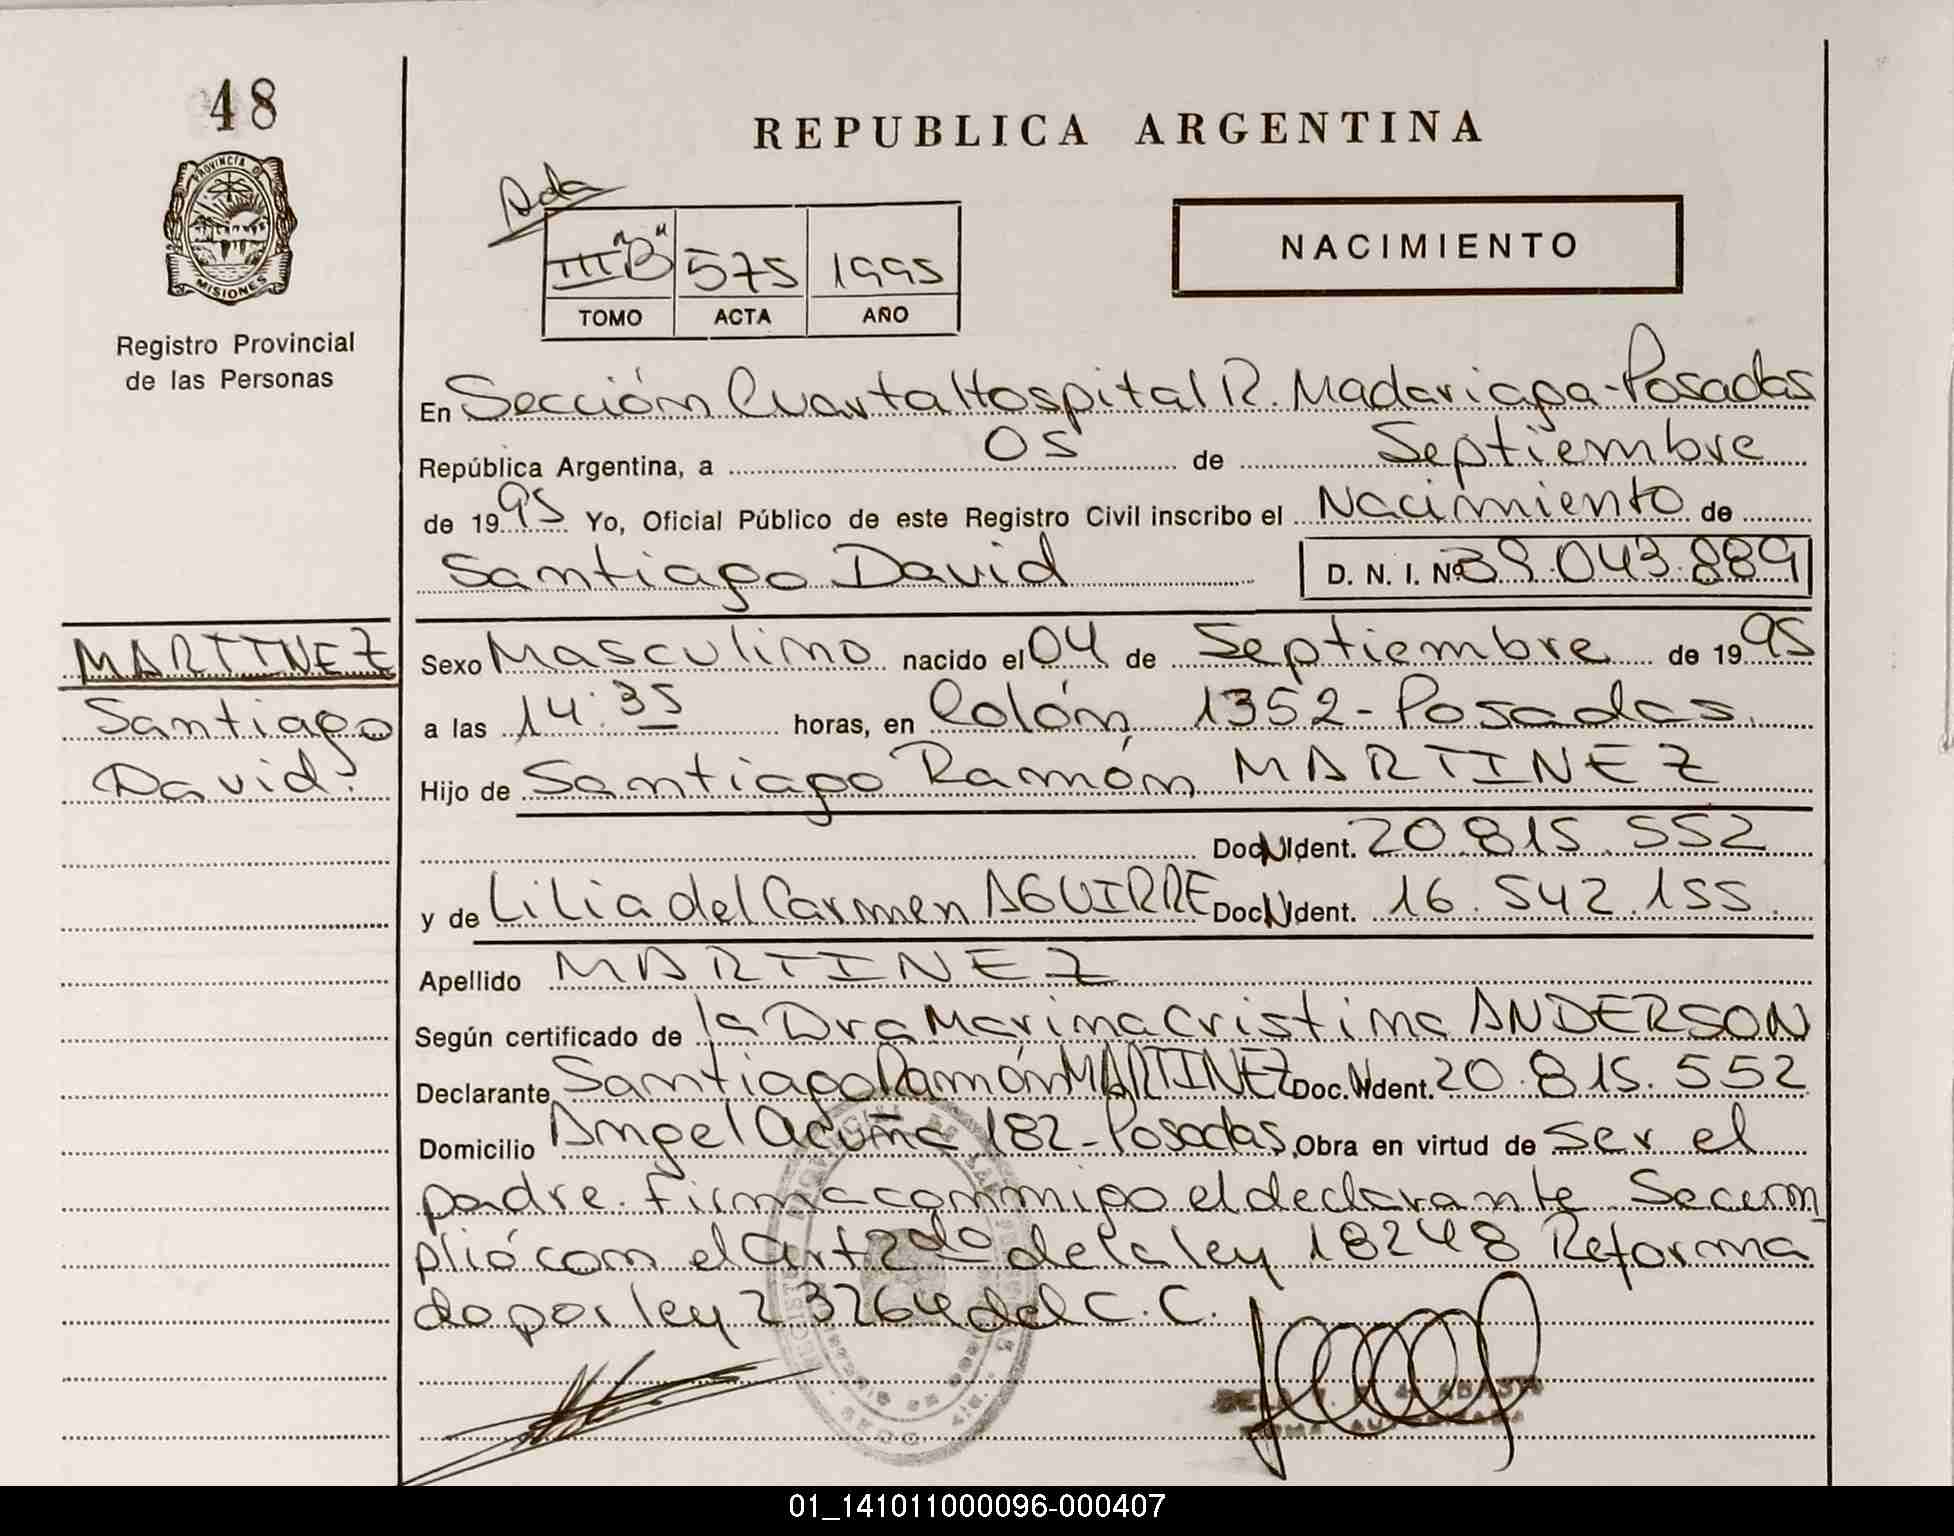 48
PROVINCIA D
MISIONES
Registro Provincial
de las Personas
REPUBLICA ARGENTINA
Ada
III "B" 575 1995
TOMO ACTA AÑO
NACIMIENTO
En Sección Cuarta Hospital R. Madariaga - Posadas
República Argentina, a 05 de Septiembre
de 1995 Yo, Oficial Público de este Registro Civil inscribo el Nacimiento de
Santiago David D. N. I. Nº 39.043.889
MARTINEZ
Santiago
David.
Sexo Masculino nacido el 04 de Septiembre de 1995
a las 14:35 horas, en Colón 1352 - Posadas.
Hijo de Santiago Ramón MARTINEZ
Doc. N. Ident. 20.815.552
y de Lilia del Carmen AGUIRRE Doc. N. Ident. 16.542.155.
Apellido MARTINEZ
Según certificado de la Dra Marina Cristina ANDERSON
Declarante Santiago Ramón MARTINEZ Doc. N. Ident. 20.815.552
Domicilio Angel Acuña 182 - Posadas, Obra en virtud de ser el
padre. Firma conmigo el declarante. Se cum
plió con el Art 2do de la ley 18248 Reforma
do por ley 23264 del C.C.
01_141011000096-000407